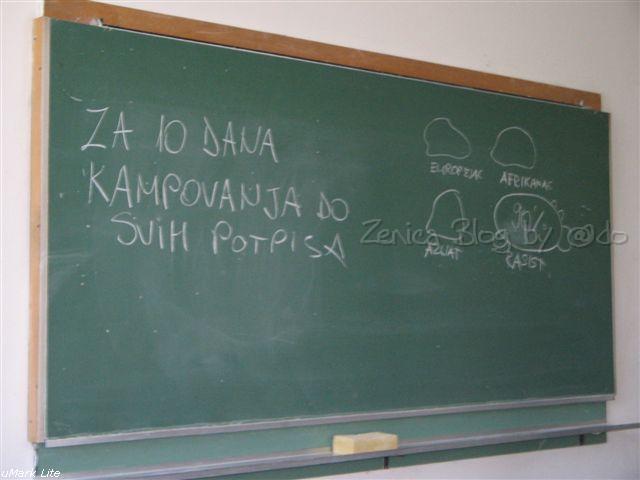 ZA 10 DANA
KAMPOVANJA DO
SVIH POTPISA
EUROPEJAC
AFRIKANAC
AZIJAT
Zenica Blog by @do
uMark Lite